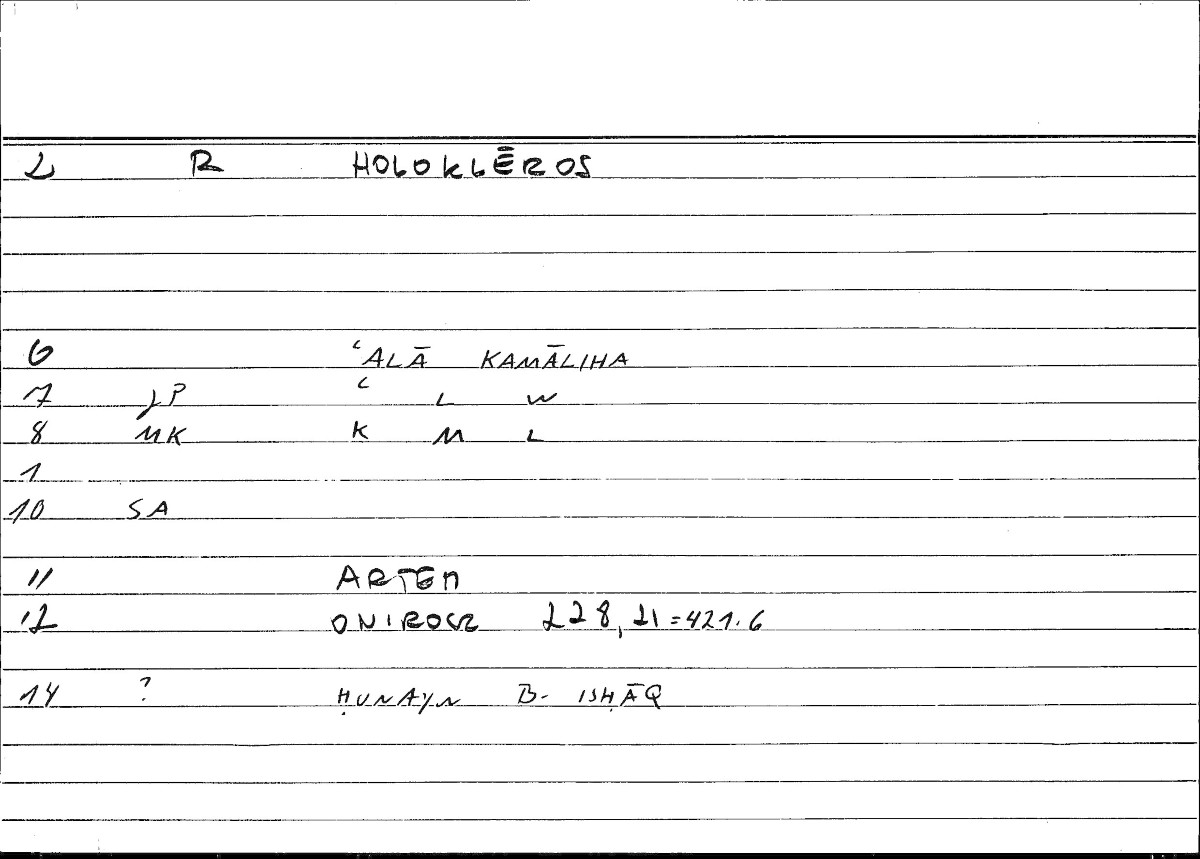 2 R HOLOKLĒROS
6 ʿALĀ KAMĀLIHA
7 JP ʿ L W
8 MK K M L
1
10 SA
11 ARTEM
12 ONIROCR 228, 21 = 421.6
14 ? ḤUNAYN B. ISḤĀQ